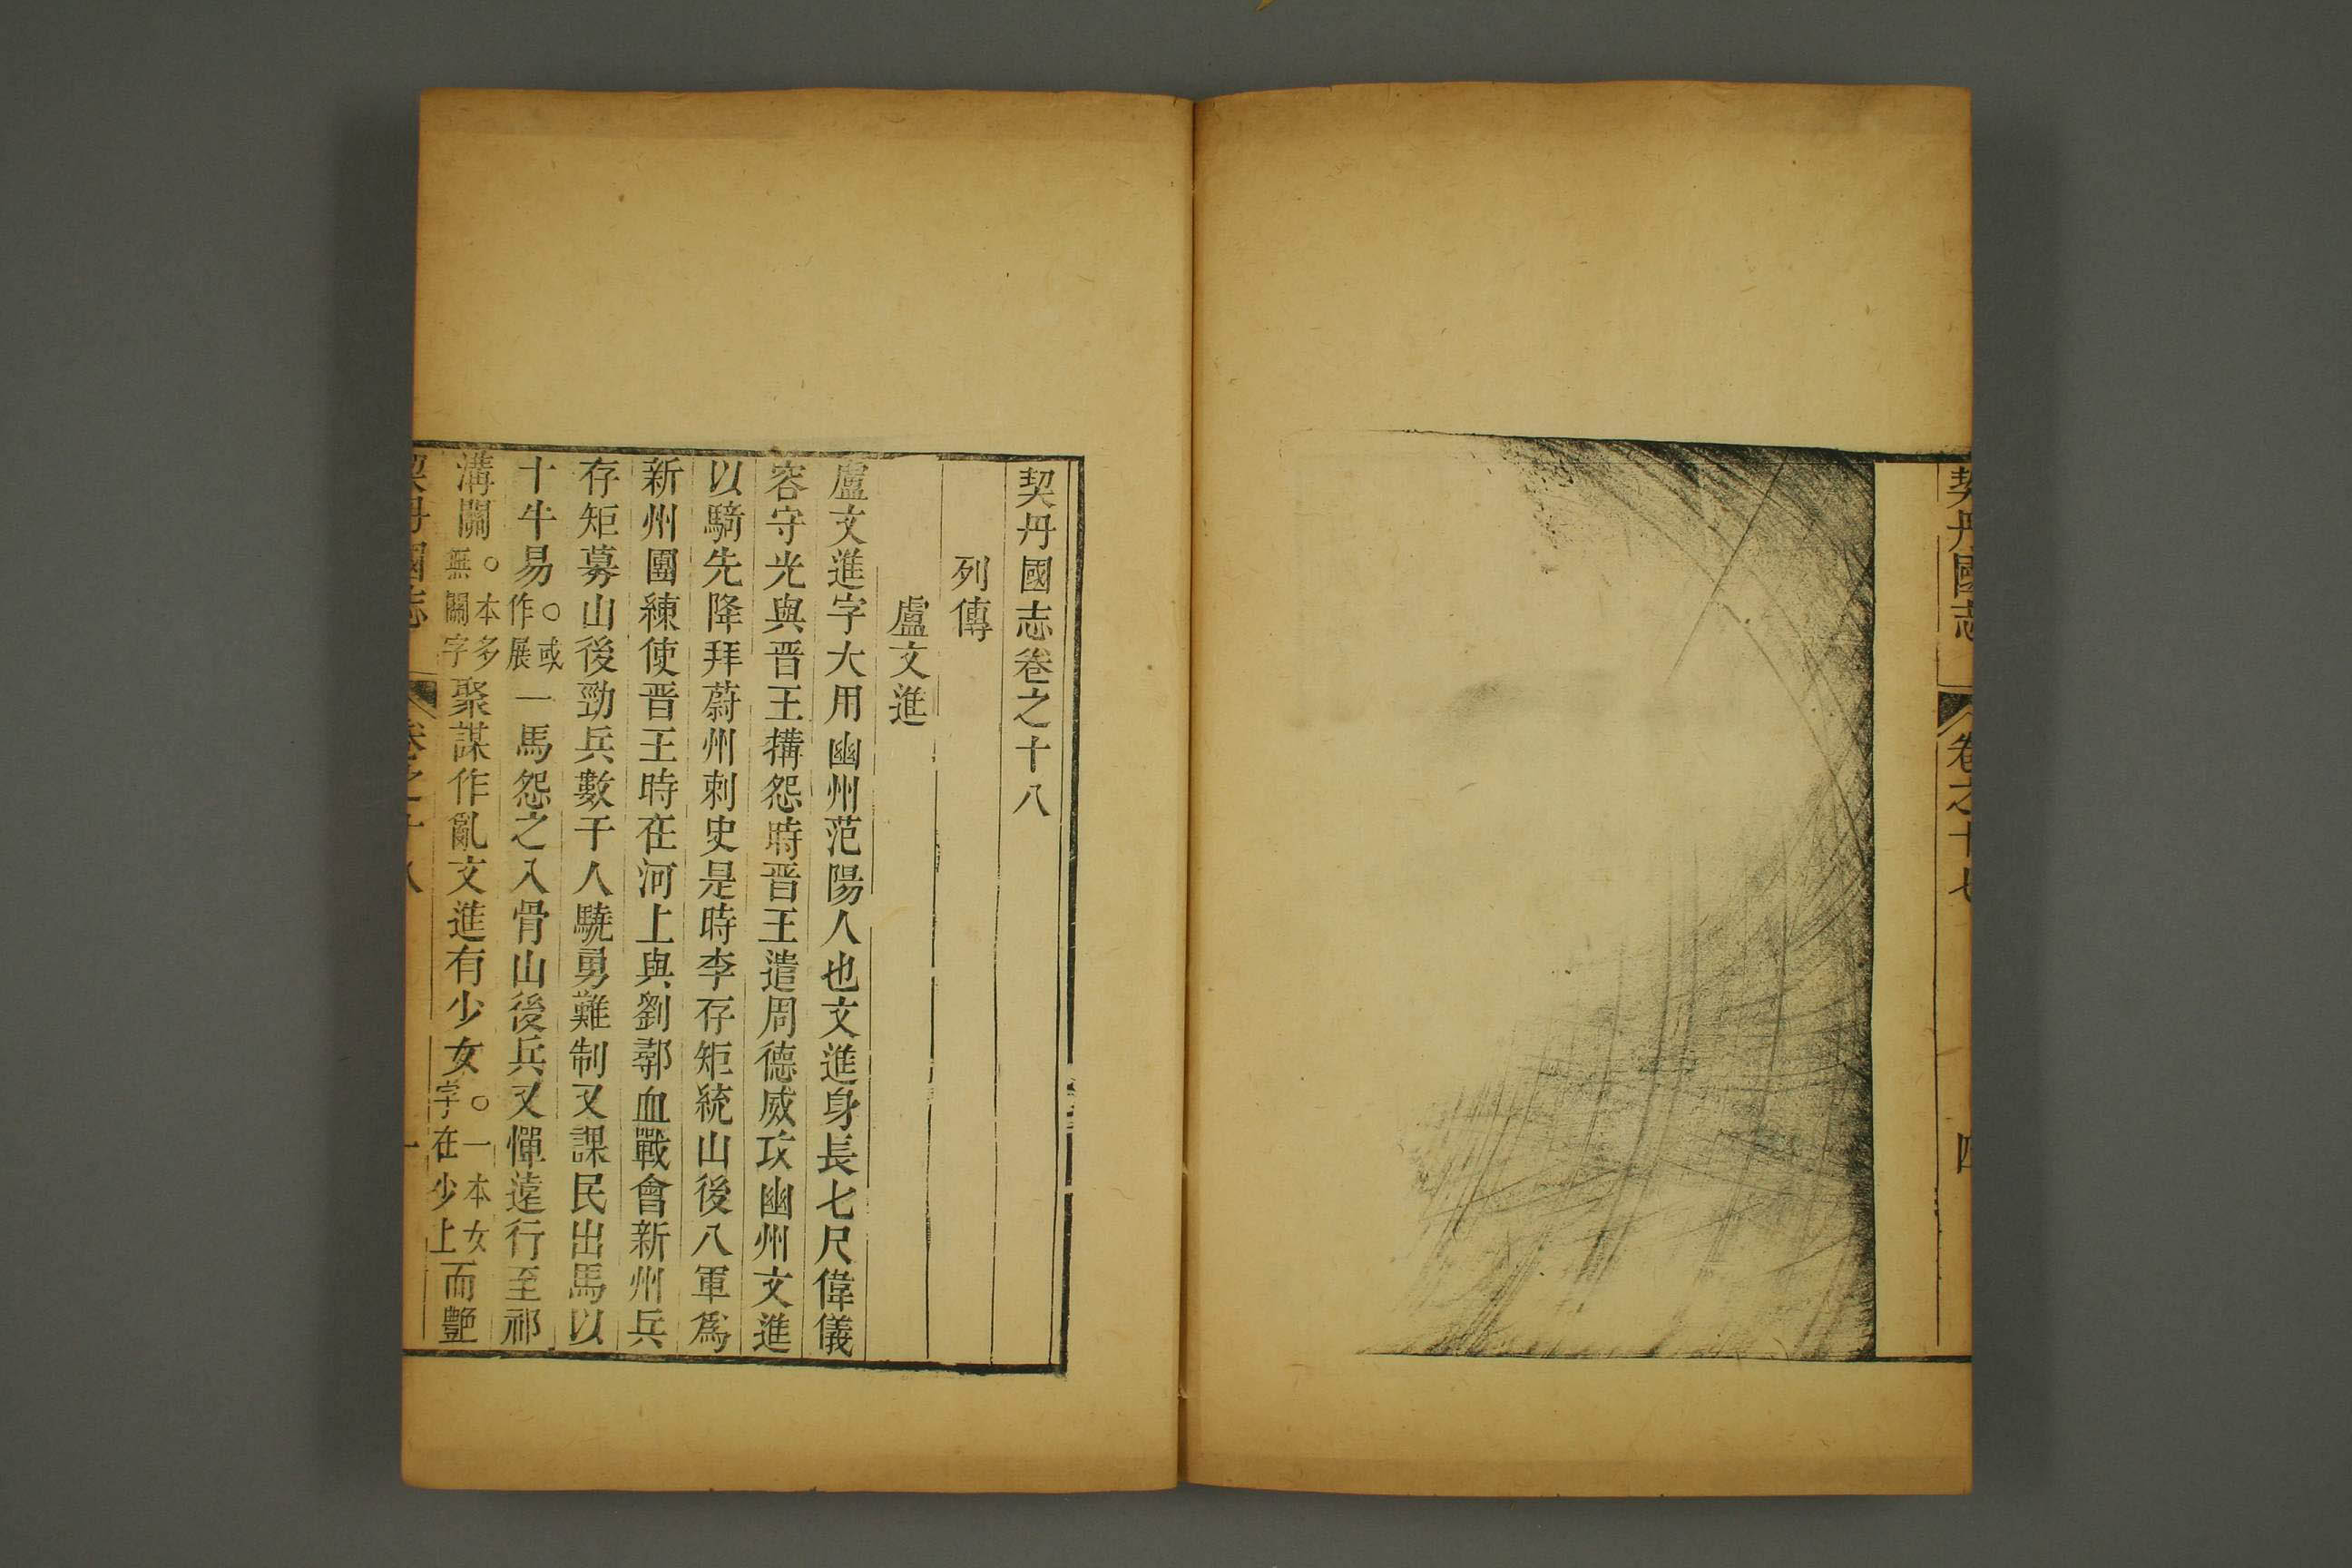 契丹國志
卷之十七
四
契丹國志卷之十八
列傳
盧文進
盧文進字大用幽州范陽人也文進身長七尺偉儀
容守光與晋王搆怨時晋王遣周德威攻幽州文進
以騎先降拜蔚州刺史是時李存矩統山後八軍爲
新州團練使晋王時在河上與劉鄩血戰會新州兵
存矩募山後勁兵數千人驍勇難制又課民出馬以
十牛易○或作展一馬怨之入骨山後兵又憚遠行至祁
溝關○本多無關字聚謀作亂文進有少女○一本女字在少上而艶
契丹國志
卷之十八
一